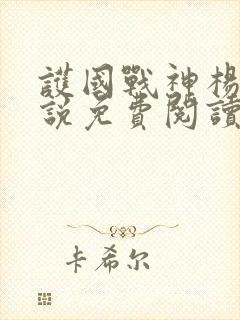 護國戰神楊
說免費閱讀
卡希尔